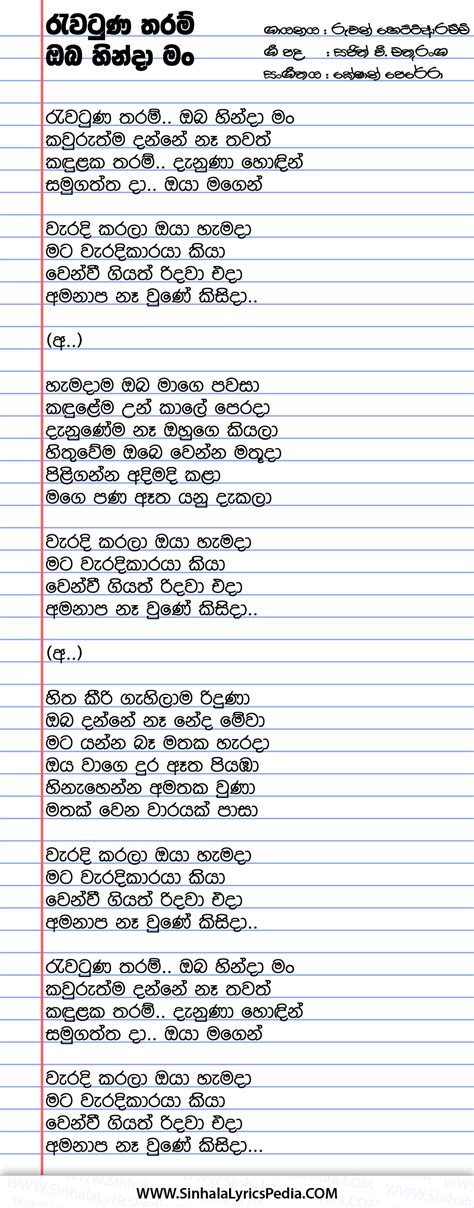 රැවටුණ තරම්
ඔබ හින්දා මං
ගායනය : රුවන් හෙට්ටිආරච්චි
ගී පද : සජිත් වී. චතුරංග
සංගීතය : කේෂාන් පෙරේරා
රැවටුණ තරම්.. ඔබ හින්දා මං
කවුරුත්ම දන්නේ නෑ තවත්
කඳුළක තරම්.. දැනුණා හොඳින්
සමුගත්ත දා.. ඔයා මගෙන්
වැරදි කරලා ඔයා හැමදා
මට වැරදිකාරයා කියා
වෙන්වී ගියත් රිදවා එදා
අමනාප නෑ වුණේ කිසිදා..
(අ..)
හැමදාම ඔබ මාගෙ පවසා
කඳුළේම උන් කාලේ පෙරදා
දැනුණේම නෑ ඔහුගෙ කියලා
හිතුවේම ඔබෙ වෙන්න මතුදා
පිළිගන්න අදිමදි කළා
මගෙ පණ ඈත යනු දැකලා
වැරදි කරලා ඔයා හැමදා
මට වැරදිකාරයා කියා
වෙන්වී ගියත් රිදවා එදා
අමනාප නෑ වුණේ කිසිදා..
(අ..)
හිත කීරි ගැහිලාම රිදුණා
ඔබ දන්නේ නෑ නේද මේවා
මට යන්න බෑ මතක හැරදා
ඔය වාගෙ දුර ඈත පියඹා
හිනැහෙන්න අමතක වුණා
මතක් වෙන වාරයක් පාසා
වැරදි කරලා ඔයා හැමදා
මට වැරදිකාරයා කියා
වෙන්වී ගියත් රිදවා එදා
අමනාප නෑ වුණේ කිසිදා..
රැවටුණ තරම්.. ඔබ හින්දා මං
කවුරුත්ම දන්නේ නෑ තවත්
කඳුළක තරම්.. දැනුණා හොඳින්
සමුගත්ත දා.. ඔයා මගෙන්
වැරදි කරලා ඔයා හැමදා
මට වැරදිකාරයා කියා
වෙන්වී ගියත් රිදවා එදා
අමනාප නෑ වුණේ කිසිදා...
www.SinhalaLyricsPedia.COM